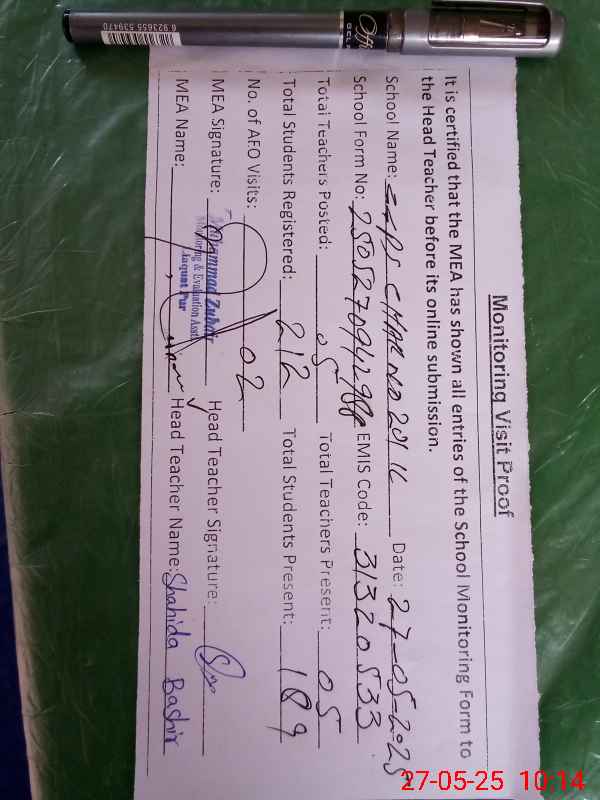 Monitoring Visit Proof
It is certified that the MEA has shown all entries of the School Monitoring Form to
the Head Teacher before its online submission.
School Name: GGPS CHAK NO 201 1L Date: 27-05-2025
School Form No: EMIS Code: 31320533
Total Teachers Posted: 05 Total Teachers Present: 05
Total Students Registered: 212 Total Students Present: 189
No. of AEO Visits: 02
MEA Signature: Head Teacher Signature:
MEA Name: Head Teacher Name: Shahida Bashir
Muhammad Zubair
Monitoring & Evaluation Asstt
Liaquat Pur
6 923655 539470
27-05-25 10:14